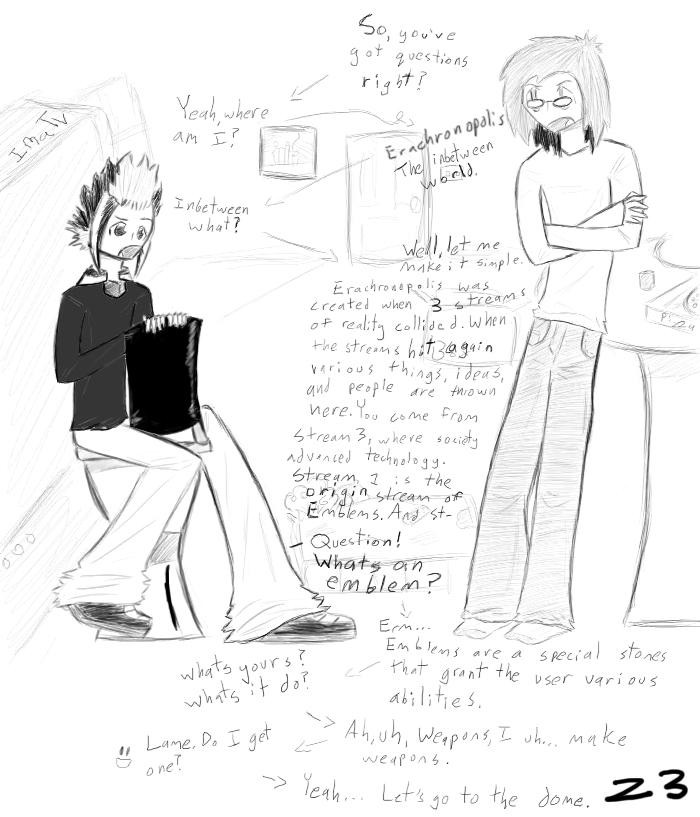 So, you've
got questions
right?
Yeah, where
am I?
I.MaTV
Erachronopolis
The inbetween
world.
Inbetween
what?
Well, let me
make it simple.
Erachronopolis was
created when 3 streams
of reality collided. When
the streams hit again
various things, ideas,
and people are thrown
here. You come from
Stream 3, where society
advanced technology.
Stream 1 is the
origin stream of
Emblems. And st-
Question!
Whats an
emblem?
Erm...
Emblems are a special stones
that grant the user various
abilities.
whats yours?
whats it do?
Ah, uh, Weapons, I uh... make
weapons.
Lame. Do I get
one?
Yeah... Let's go to the dome.
23